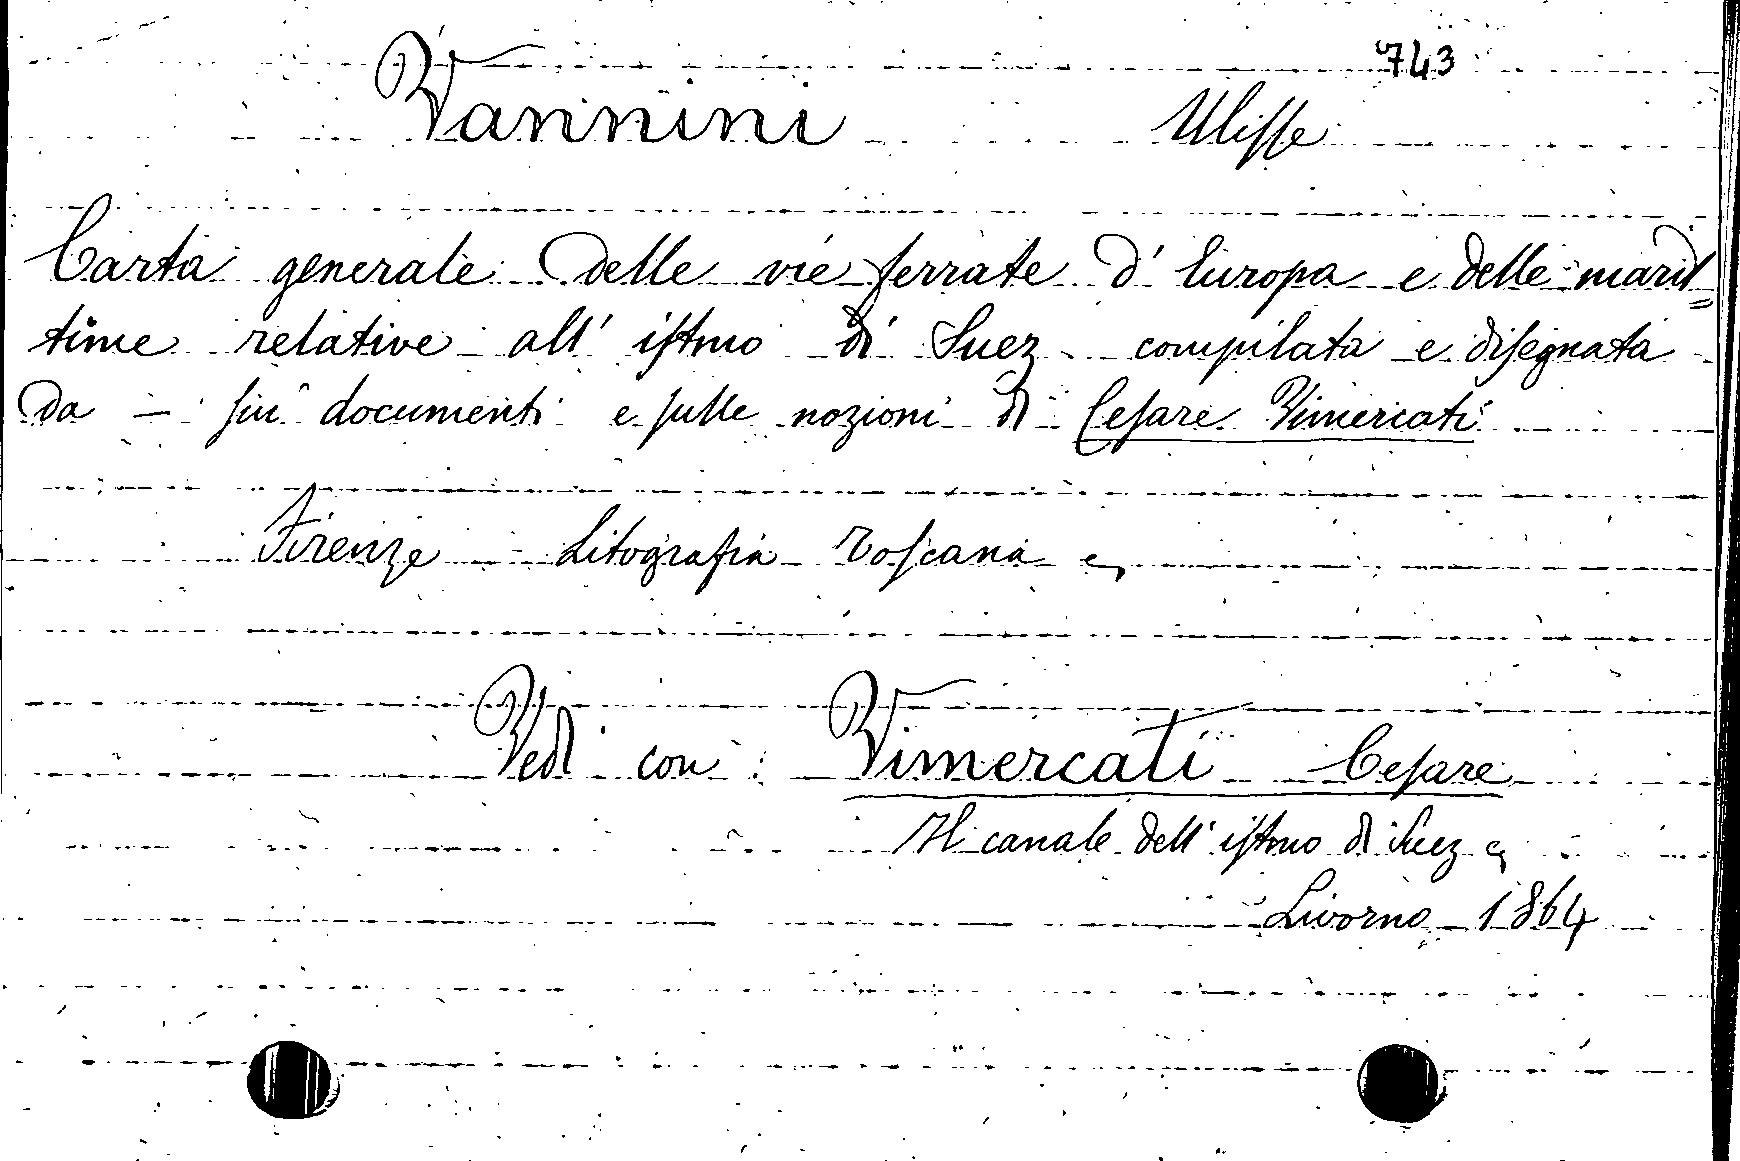 743
Vannini Ulisse
Carta generale delle vie ferrate d'Europa e delle marit=
time relative all'istmo di Suez compilata e disegnata
da — sui documenti e sulle nozioni di Cesare Vimercati
Firenze Litografia Toscana
Vedi con: Vimercati Cesare
Il canale dell'istmo di Suez
Livorno 1864